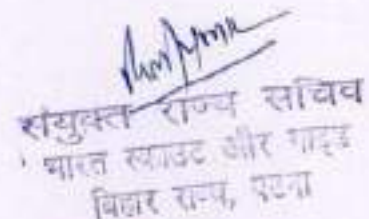 संयुक्त राज्य सचिव
भारत स्काउट और गाइड
बिहार राज्य, पटना